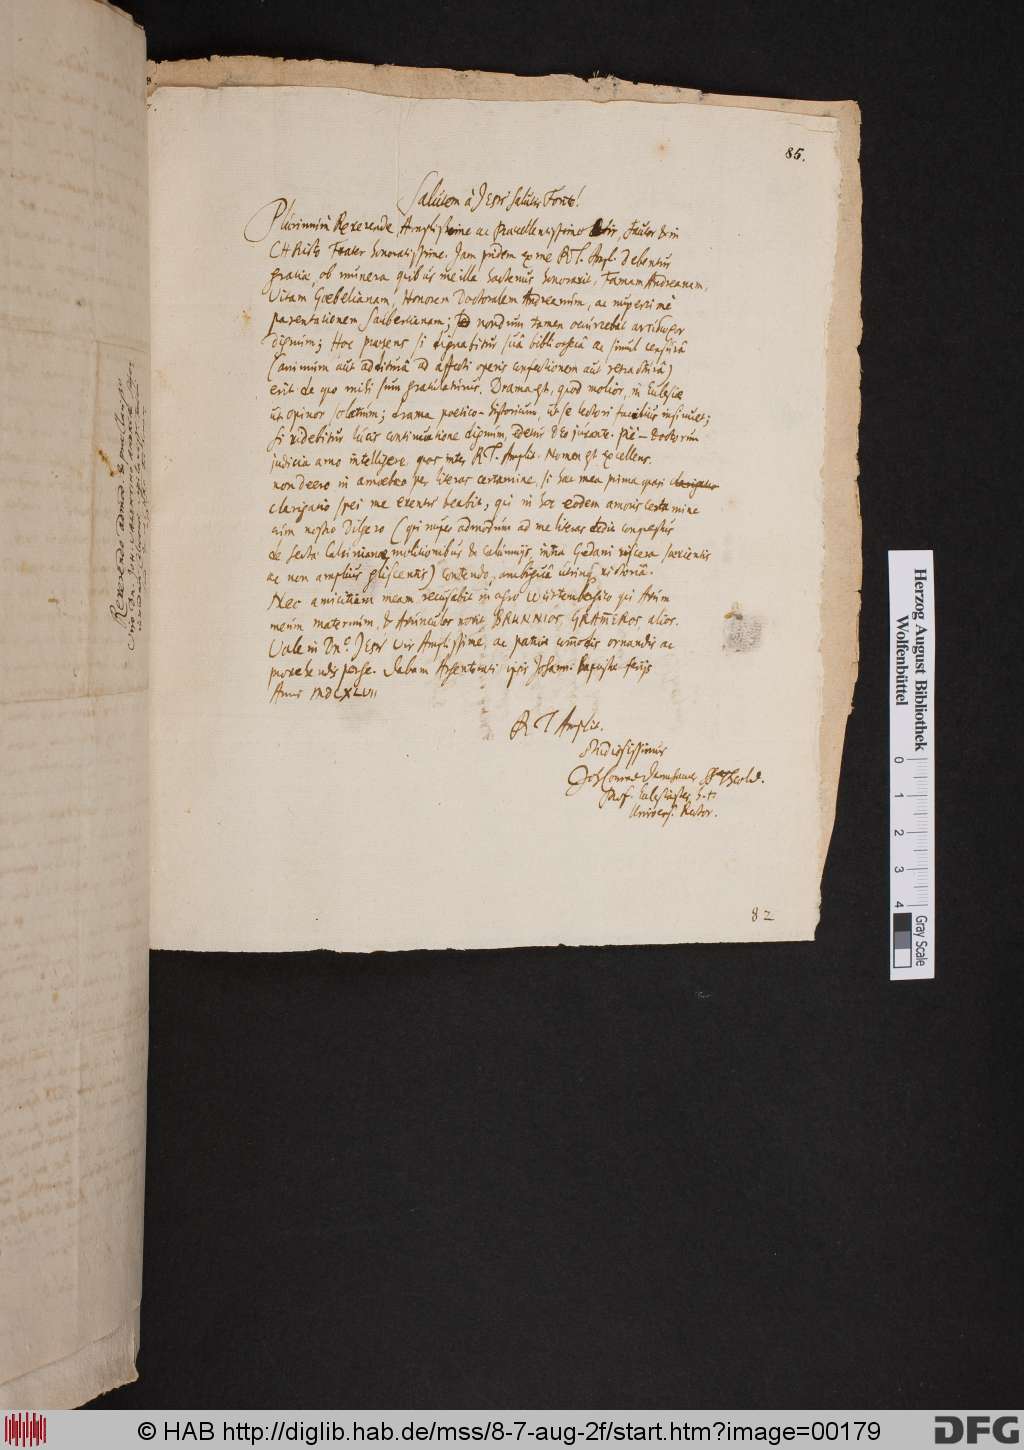 85.
Salutem à Jesu salutis Fonte!
Plurimùm Reverende Amplissime ac Præcellentissime Vir, Fautor & in
CHRisto Frater honoratissime. Jam pridem ex me R. T. Ampl. debentur
gratiæ, ob munera quibus me illa hactenus honoravit, Famam Andreanam,
Vitam Goebelianam, Honorem Doctoralem Andreanum, ac nuperrimè
parentationem Saubertianam; nondum tamen occurrebat
dignum; Hoc præsens si dignabitur suâ bibliothecâ ac simul censurâ
(animum aut additurâ ad affecti operis confectionem aut retracturâ)
erit de quo mihi sum gratulaturus. Drama est, quod molior, in Ecclesiæ
ut opinor solatium; drama poetico-historicum, ut se lectori facilius insinuet;
si videbitur lucis continuatione dignum, edetur Deo juvante. Piè-doctorum
judicia amo intelligere, quos inter R. T. Amplit. Nomen est excellens.
non deero in amoebæo per literas certamine, si hac mea prima quasi clarigatio
clarigatio spei me eventu beabit, qui in hoc eodem amoris certamine
cum nostro Dilgero (qui nuper admodum ad me literas dedit
de secta Calvinianæ molitionibus & calumnijs, intra Gedani viscera
ac non amplius gliscentis) contendo, ambiguâ utrinq victoriâ.
Nec amicitiam meam recusabit in agro Würtembergico qui Avum
meum maternum, & Avunculos novit, BRUNNIOS, GRAMEROS, alios.
Vale in Dn.º Jesu Vir Amplissime, ac patriæ commodis ornandis ac
perge. Dabam Argentorati ipsis Johann. Baptistæ ferijs
Anno MDCXLVII
R T Amplit.
studiosissimus
Joh Conrad Dannhawer SS Theol D.
Prof. Ecclesiastes h. t.
Univers. Rector.
82
Reverendo admod. & præcellenti
Viro Dn. Joh.
Herzog August Bibliothek
Wolfenbüttel
0 1 2 3 4
Gray Scale
© HAB http://diglib.hab.de/mss/8-7-aug-2f/start.htm?image=00179
DFG